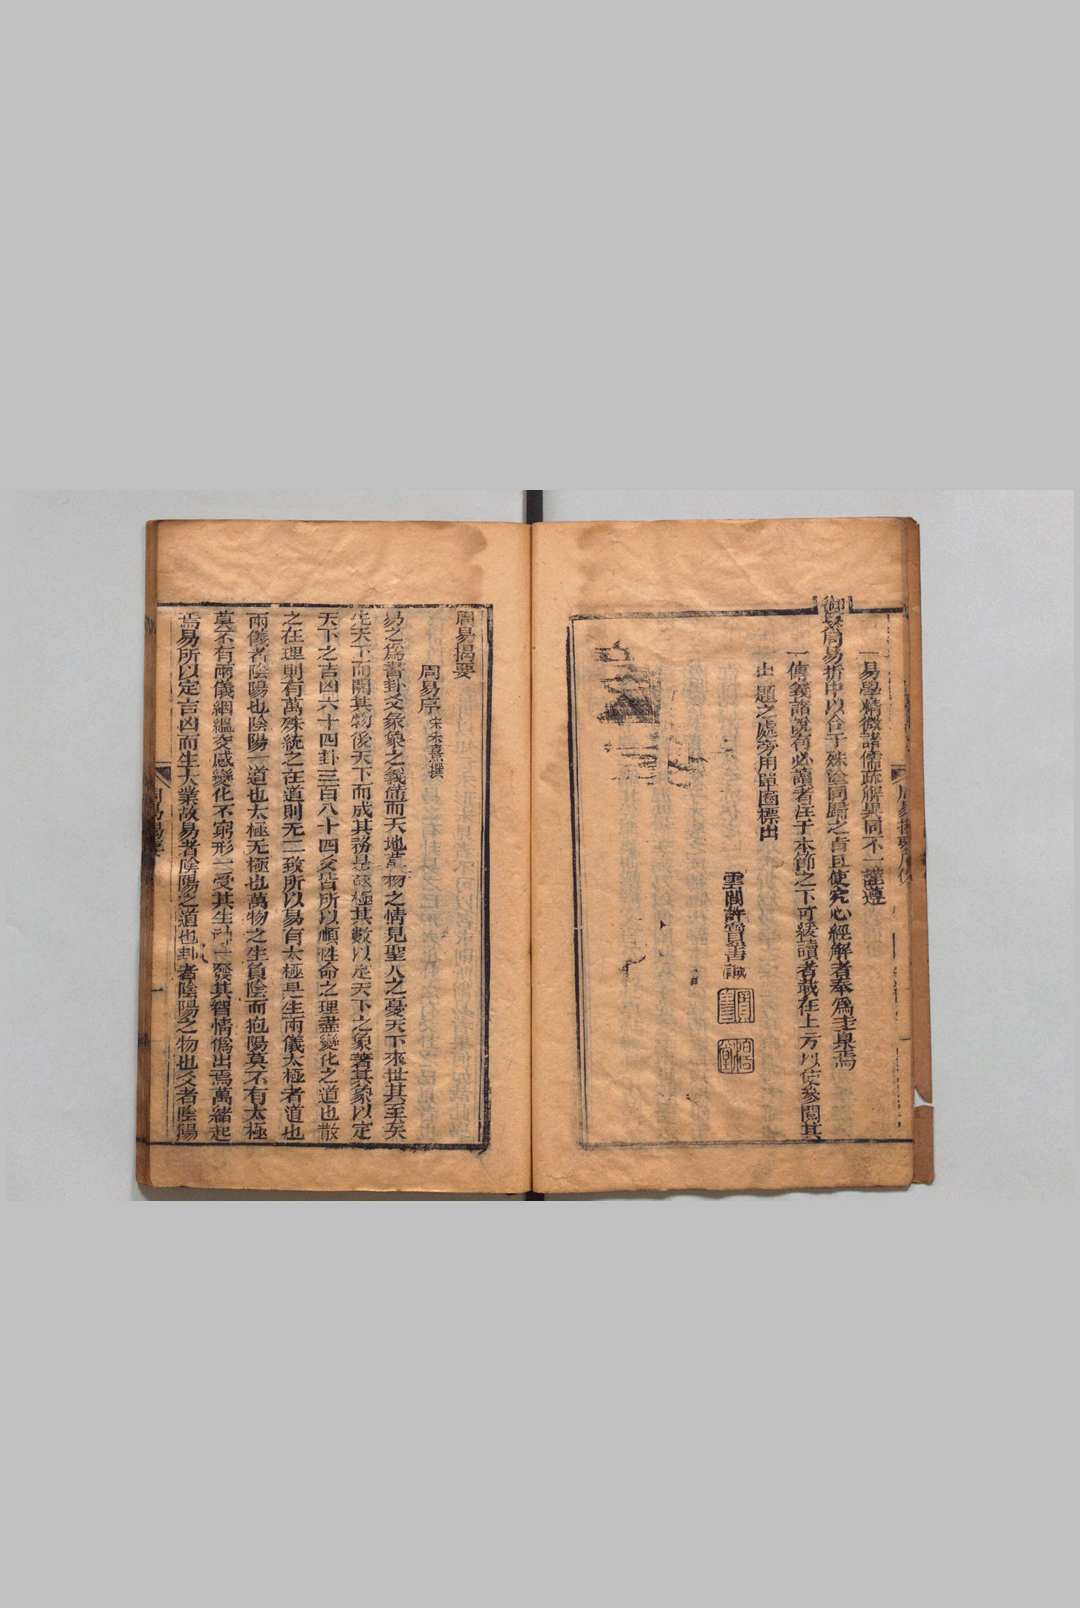 一易學精微諸儒疏解異同不一謹遵
御纂周易折中以合于殊塗同歸之旨且使究心經解者奉爲圭臬焉
一傳義諸說有必讀者注于本節之下可緩讀者載在上方以俟參閱其
出題之處旁用單圈標出
雲間許寶善識
周易揭要
周易序 宋朱熹撰
易之爲書卦爻彖象之義備而天地萬物之情見聖人之憂天下來世其至矣
先天下而開其物後天下而成其務是故極其數以定天下之象著其象以定
天下之吉凶六十四卦三百八十四爻皆所以順性命之理盡變化之道也散
之在理則有萬殊統之在道則无二致所以易有太極是生兩儀太極者道也
兩儀者陰陽也陰陽一道也太極无極也萬物之生負陰而抱陽莫不有太極
莫不有兩儀絪縕交感變化不窮形一受其生神一發其智情僞出焉萬緒起
焉易所以定吉凶而生大業故易者陰陽之道也卦者陰陽之物也爻者陰陽
周易揭要